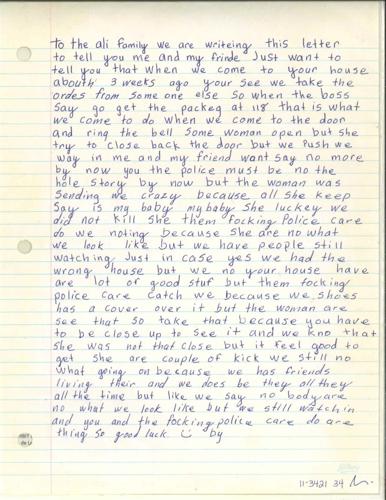 To the ali family we are writeing this letter
to tell you me and my frinde Just want to
tell you that when we come to your house
abouth 3 weeks ago your see we take the
ordes from some one else so when the boss
say go get the packeg at 118 that is what
we come to do when we come to the door
and ring the bell some woman open but she
try to close back the door but we Push we
way in me and my friend want say no more
by now you the police must be no the
hole story by now but the woman was
sending we crazy because all she keep
say is my baby my baby she luckey we
did not kill she them focking Police care
do we noting because she are no what
we look like but we have people still
watching Just in case yes we had the
wrong house but we no your house have
are lot of good stuf but them focking
police care catch we because we shoes
has a cover over it but the woman are
see that so take that because you have
to be close up to see it and we kno that
she was not that close but it feel good to
get she are couple of kick we still no
what going on because we has friends
living their and we does be they all they
all the time but like we say no body are
no what we look like but we still watch in
and you and the focking police care do are
thing so good luck by
11-3421 34